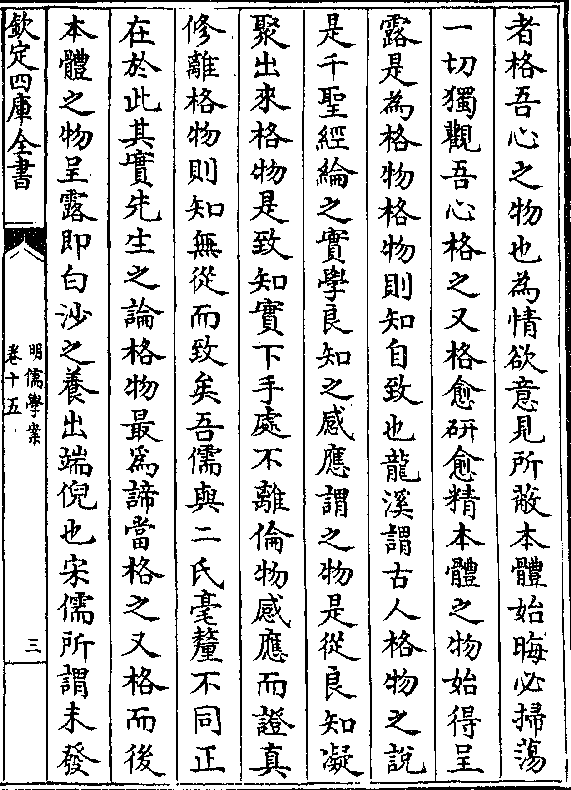 者格吾心之物也為情欲意見所蔽本體始晦必掃蕩
一切獨觀吾心格之又格愈研愈精本體之物始得呈
露是為格物格物則知自致也龍溪謂古人格物之説
是千聖經綸之實學良知之感應謂之物是從良知凝
聚出來格物是致知實下手處不離倫物感應而證真
修離格物則知無從而致矣吾儒與二氏毫釐不同正
在於此其實先生之論格物最為諦當格之又格而後
本體之物呈露即白沙之養出端倪也宋儒所謂未發
欽定四庫全書
明儒學案
卷十五
三